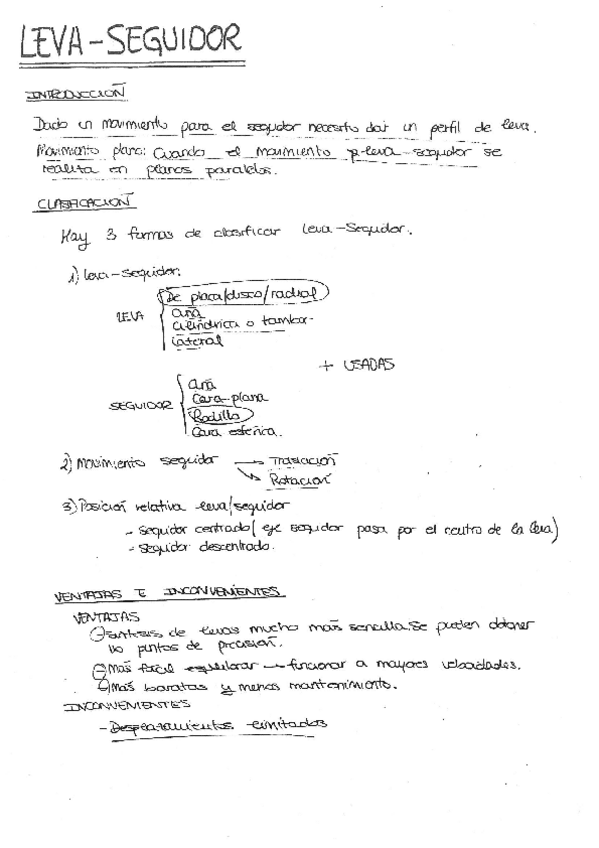 LEVA-SEGUIDOR
INTRODUCCIÓN
Dado un movimiento para el seguidor necesito dar un perfil de leva.
Movimiento plano: Cuando el movimiento leva-seguidor se
realiza en planos paralelos.
CLASIFICACIÓN
Hay 3 formas de clasificar leva-seguidor.
1) leva-seguidor:
De placa/disco/radial
LEVA
cuña
cilíndrica o tambor
lateral
+ USADAS
cuña
SEGUIDOR
Cara-plana
Rodillo
Cara esférica.
2) Movimiento seguidor → Traslación
→ Rotación
3) Posición relativa leva/seguidor
- Seguidor centrado (eje seguidor pasa por el centro de la leva)
- Seguidor descentrado.
VENTAJAS E INCONVENIENTES
VENTAJAS
síntesis de levas mucho más sencilla. Se pueden obtener
puntos de precisión.
Más fácil equilibrar → funcionar a mayores velocidades.
Más baratas y menos mantenimiento.
INCONVENIENTES
- Desplazamientos limitados